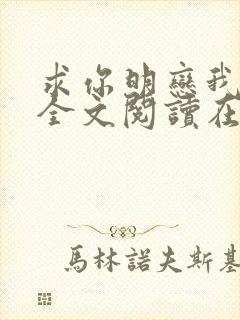 求你明戀我
全文閱讀在
馬林諾夫斯基